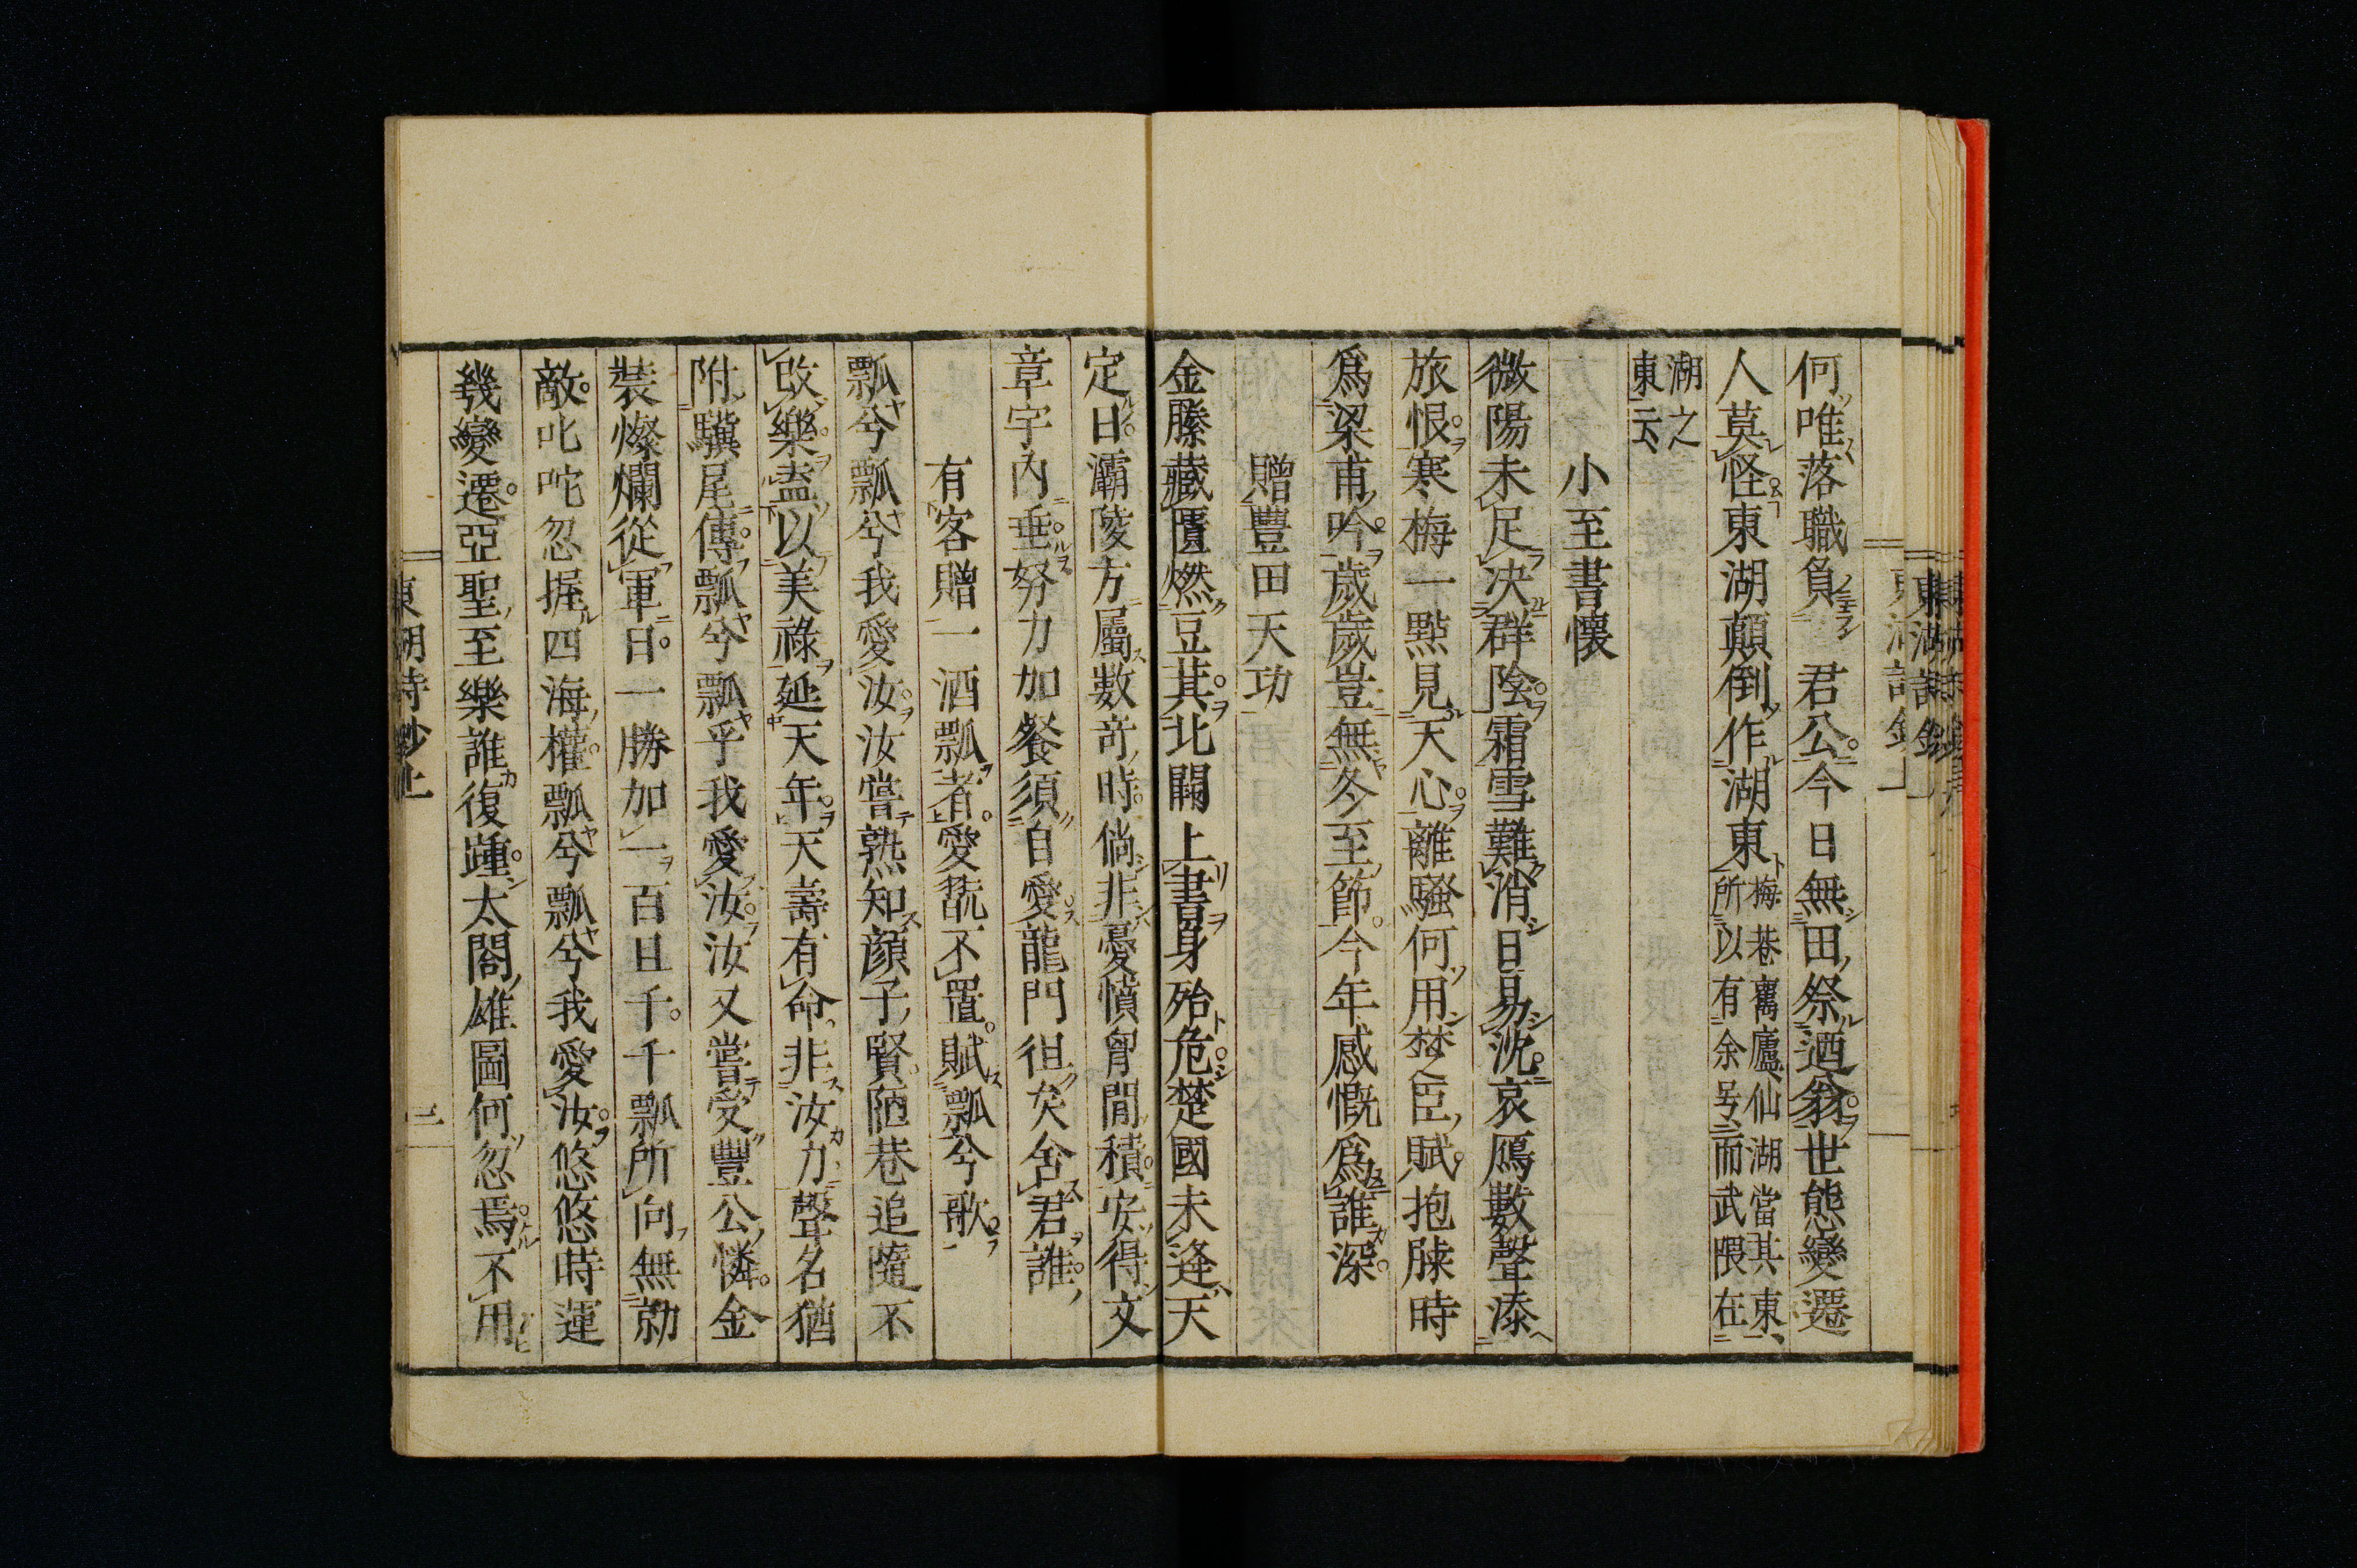 何唯落職負　君公今日無田祭酒翁世態變遷
人莫怪東湖顛倒作湖東梅巷寓廬仙湖當其東、
所以有余号而武隈在
湖之
東云
小至書懷
微陽未足決群陰霜雪難消日易沈哀鴈數聲添
旅恨寒梅一點見天心離騷何用楚臣賦抱膝時
爲梁甫吟歲歲豈無冬至節今年感慨爲誰深
贈豐田天功
金縢藏匱燃豆萁北闕上書身殆危楚國未逢天
定日灞陵方屬數竒時倘非憂憤胷間積安得文
章宇內垂努力加餐須自愛龍門徂矣舍君誰
有客贈一酒瓢者愛翫不置賦瓢兮歌
瓢兮瓢兮我愛汝汝嘗熟知顔子賢陋巷追隨不
改樂盍以美祿延天年天壽有命非汝力聲名猶
附驥尾傳瓢兮瓢乎我愛汝汝又嘗受豐公憐金
裝燦爛從軍日一勝加一百且千千瓢所向無勍
敵叱咤忽握四海權瓢兮瓢兮我愛汝悠悠時運
幾變遷亞聖至樂誰復踵太閤雄圖何忽焉不用
東湖詩鈔上　三